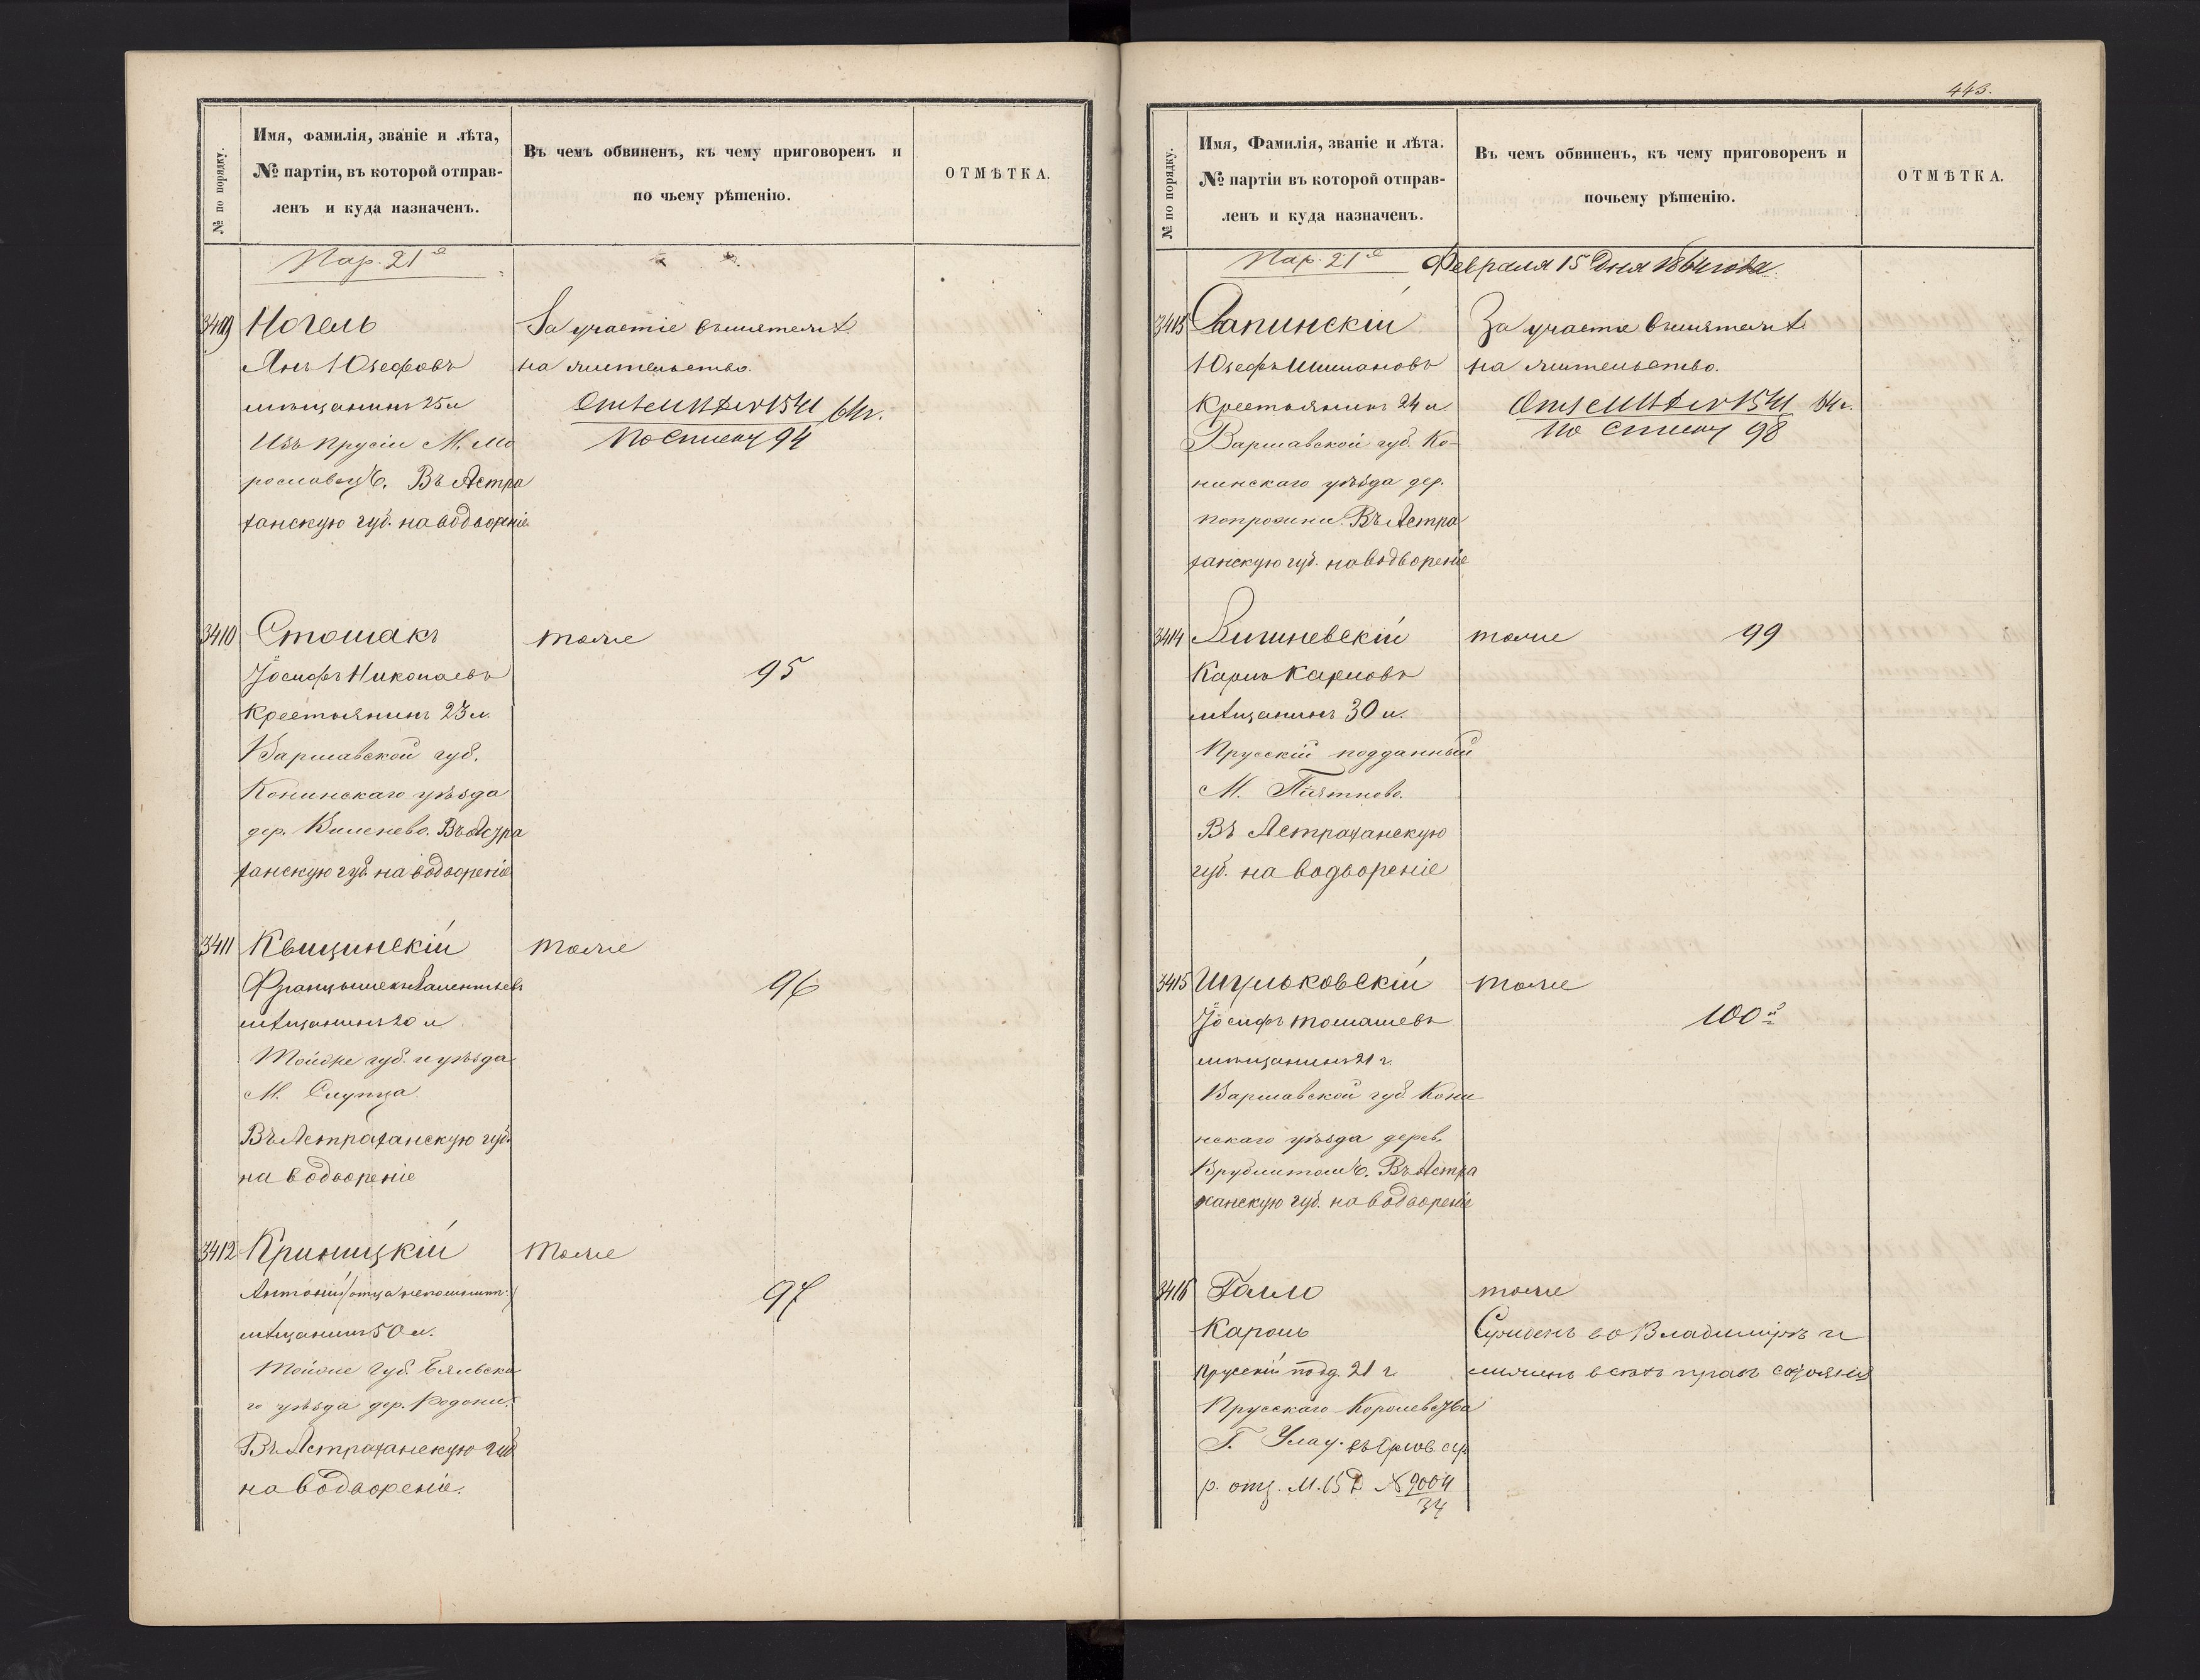 № по порядку.
Имя, фамилія, званіе и лѣта,
№ партіи, въ которой отправ-
ленъ и куда назначенъ.
Въ чемъ обвиненъ, къ чему приговоренъ и
по чьему рѣшенію.
ОТМѢТКА.
Пар. 21я
3409
Ногель
Янъ Юзефовъ
мѣщанинъ 25 л
Изъ Прусіи М. Ми
рославец. Въ Астра
ханскую губ. на водвореніе
За участіе въ мятежѣ
на жительство.
1541 64 г.
По списку 94
3410
Стошакъ
Іосифъ Николаевъ
Крестьянинъ 23 л.
Варшавской губ.
Конинскаго уѣзда
дер. Виленево. Въ Астра
ханскую губ. на водвореніе
тоже
95
3411
Квицинскій
Францышекъ Валентьев
мѣщанинъ 20 л
Тойже губ. и уѣзда
М. Слупца.
Въ Астраханскую губ.
на водвореніе
тоже
96
3412
Криницкій
Антоній (отца непомнит.)
мѣщанинъ 50 л.
Тойже губ. Бяльска
го уѣзда дер.
Въ Астраханскую губ
на водвореніе.
тоже
97
443.
№ по порядку.
Имя, Фамилія, званіе и лѣта.
№ партіи въ которой отправ-
ленъ и куда назначенъ.
Въ чемъ обвиненъ, къ чему приговоренъ и
почьему рѣшенію.
ОТМѢТКА.
Пар. 21я Февраля 15 дня 1864 года.
3413
Лапинскій
Юзефъ Шимановъ
Крестьянинъ 24 л.
Варшавской губ. Ко-
нинскаго уѣзда дер.
Въ Астра
ханскую губ. на водвореніе
За участіе въ мятежѣ
на жительство.
1541 64 г.
По списку 98
3414
Вишневскій
Карлъ Карловъ
мѣщанинъ 30 л.
Прусскій подданный
М. Пятново.
Въ Астраханскую
губ. на водвореніе
тоже
99
3415
Шульковскій
Іосифъ Томашевъ
мѣщанинъ 21 г.
Варшавской губ Кони
нскаго уѣзда дерев.
Въ Астра
ханскую губ. на водвореніе
тоже
100й
3416
Галло
Кароль
прусскій подд. 21 г
Прусскаго Королевства
Г.
№ 9004
34
тоже
Сужденъ во Владимірѣ и
лишенъ всѣхъ правъ состоянія